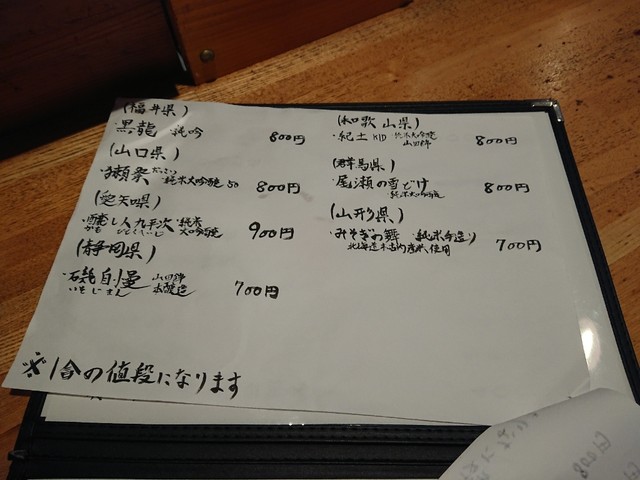 (福井県)
・黒龍 純吟 800円
(山口県)
・獺祭 だっさい 純米大吟醸 50 800円
(愛知県)
・醸し人九平次 純米
大吟醸 900円
かも びと くへいじ
(静岡県)
・磯自慢 山田錦
いそじまん 本醸造 700円
(和歌山県)
・紀土 KID 純米大吟醸
山田錦 800円
(群馬県)
・尾瀬の雪どけ 800円
純米大吟醸
(山形県)
・みそぎの舞 純米吟造り 700円
北海道木古内産米使用
※1合の値段になります
800円